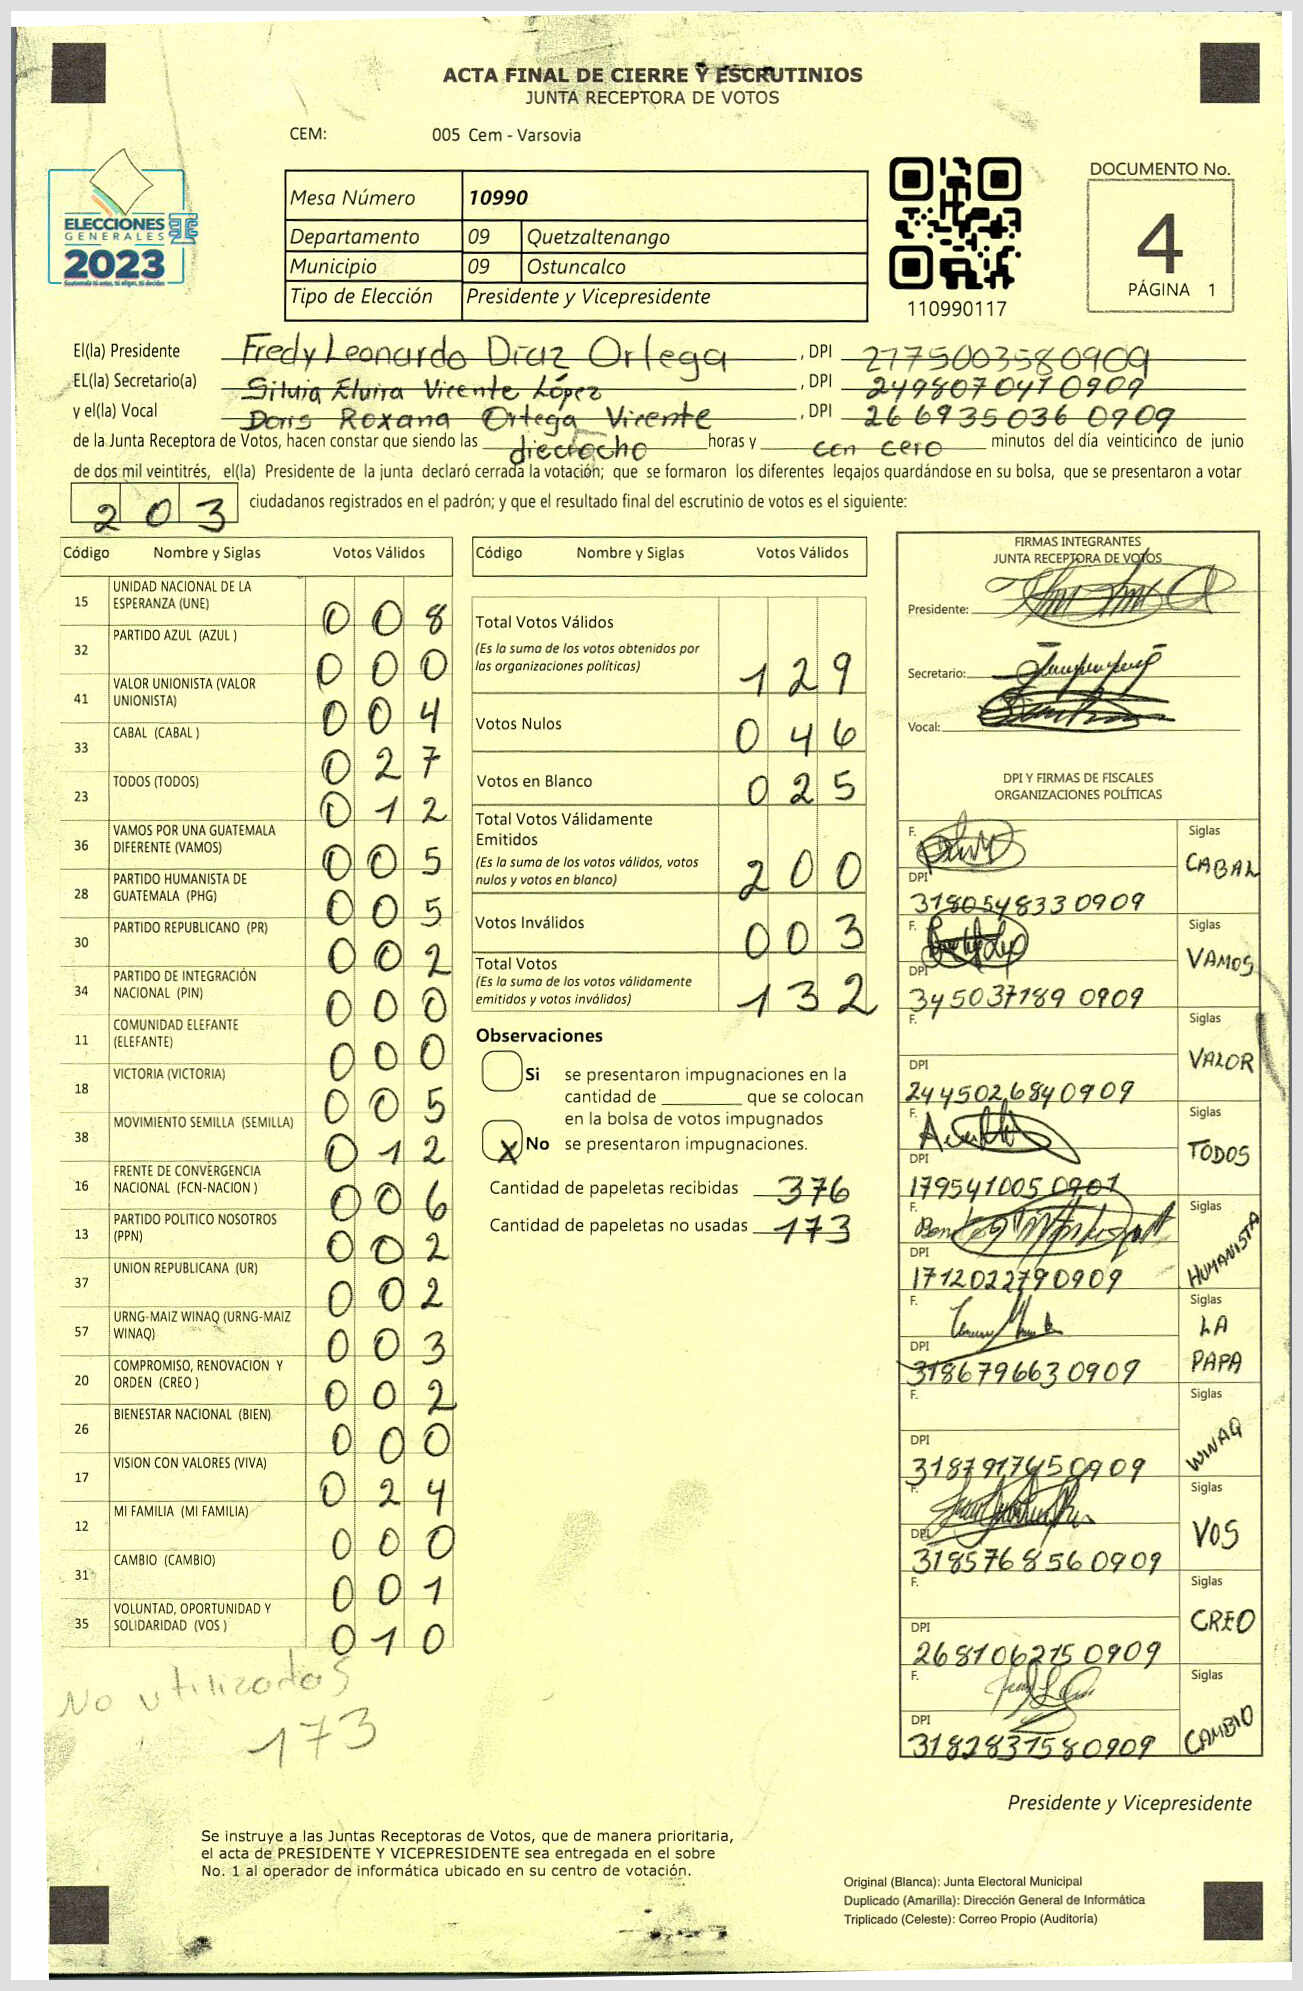 ACTA FINAL DE CIERRE Y ESCRUTINIOS
JUNTA RECEPTORA DE VOTOS
CEM: 005 Cem - Varsovia
ELECCIONES
GENERALES
2023
Mesa Número 10990
Departamento 09 Quetzaltenango
Municipio 09 Ostuncalco
Tipo de Elección Presidente y Vicepresidente
110990117
DOCUMENTO No.
4
PÁGINA 1
El(la) Presidente Fredy Leonardo Díaz Ortega, DPI 2775003580909
EL(la) Secretario(a) Silvia Elvira Vicente López, DPI 2498070410909
y el(la) Vocal Doris Roxana Ortega Vicente, DPI 2669350360909
de la Junta Receptora de Votos, hacen constar que siendo las dieciocho horas y con cero minutos del día veinticinco de junio
de dos mil veintitrés, el(la) Presidente de la junta declaró cerrada la votación; que se formaron los diferentes legajos guardándose en su bolsa, que se presentaron a votar
203 ciudadanos registrados en el padrón; y que el resultado final del escrutinio de votos es el siguiente:
Código Nombre y Siglas Votos Válidos
15 UNIDAD NACIONAL DE LA ESPERANZA (UNE) 008
32 PARTIDO AZUL (AZUL ) 000
41 VALOR UNIONISTA (VALOR UNIONISTA) 004
33 CABAL (CABAL ) 027
23 TODOS (TODOS) 012
36 VAMOS POR UNA GUATEMALA DIFERENTE (VAMOS) 005
28 PARTIDO HUMANISTA DE GUATEMALA (PHG) 005
30 PARTIDO REPUBLICANO (PR) 002
34 PARTIDO DE INTEGRACIÓN NACIONAL (PIN) 000
11 COMUNIDAD ELEFANTE (ELEFANTE) 000
18 VICTORIA (VICTORIA) 005
38 MOVIMIENTO SEMILLA (SEMILLA) 012
16 FRENTE DE CONVERGENCIA NACIONAL (FCN-NACION ) 006
13 PARTIDO POLITICO NOSOTROS (PPN) 002
37 UNION REPUBLICANA (UR) 002
57 URNG-MAIZ WINAQ (URNG-MAIZ WINAQ) 003
20 COMPROMISO, RENOVACION Y ORDEN (CREO ) 002
26 BIENESTAR NACIONAL (BIEN) 000
17 VISION CON VALORES (VIVA) 024
12 MI FAMILIA (MI FAMILIA) 000
31 CAMBIO (CAMBIO) 001
35 VOLUNTAD, OPORTUNIDAD Y SOLIDARIDAD (VOS ) 010
No utilizados
173
Código Nombre y Siglas Votos Válidos
Total Votos Válidos
(Es la suma de los votos obtenidos por
las organizaciones políticas) 129
Votos Nulos 046
Votos en Blanco 025
Total Votos Válidamente
Emitidos
(Es la suma de los votos válidos, votos
nulos y votos en blanco) 200
Votos Inválidos 003
Total Votos
(Es la suma de los votos válidamente
emitidos y votos inválidos) 132
Observaciones
Si se presentaron impugnaciones en la
cantidad de ________ que se colocan
en la bolsa de votos impugnados
X No se presentaron impugnaciones.
Cantidad de papeletas recibidas 376
Cantidad de papeletas no usadas 173
FIRMAS INTEGRANTES
JUNTA RECEPTORA DE VOTOS
Presidente:
Secretario:
Vocal:
DPI Y FIRMAS DE FISCALES
ORGANIZACIONES POLÍTICAS
F. Siglas
CABAL
DPI
3180548330909
F. Siglas
VAMOS
DPI
3450371890909
F. Siglas
VALOR
DPI
2445026840909
F. Siglas
TODOS
DPI
1795410050901
F. Siglas
HUMANISTA
DPI
1712022790909
F. Siglas
LA
PAPA
DPI
3186796630909
F. Siglas
WINAQ
DPI
3187917650909
F. Siglas
VOS
DPI
3185768560909
F. Siglas
CREO
DPI
2681062150909
F. Siglas
CAMBIO
DPI
3182837580909
Presidente y Vicepresidente
Se instruye a las Juntas Receptoras de Votos, que de manera prioritaria,
el acta de PRESIDENTE Y VICEPRESIDENTE sea entregada en el sobre
No. 1 al operador de informática ubicado en su centro de votación.
Original (Blanca): Junta Electoral Municipal
Duplicado (Amarilla): Dirección General de Informática
Triplicado (Celeste): Correo Propio (Auditoría)